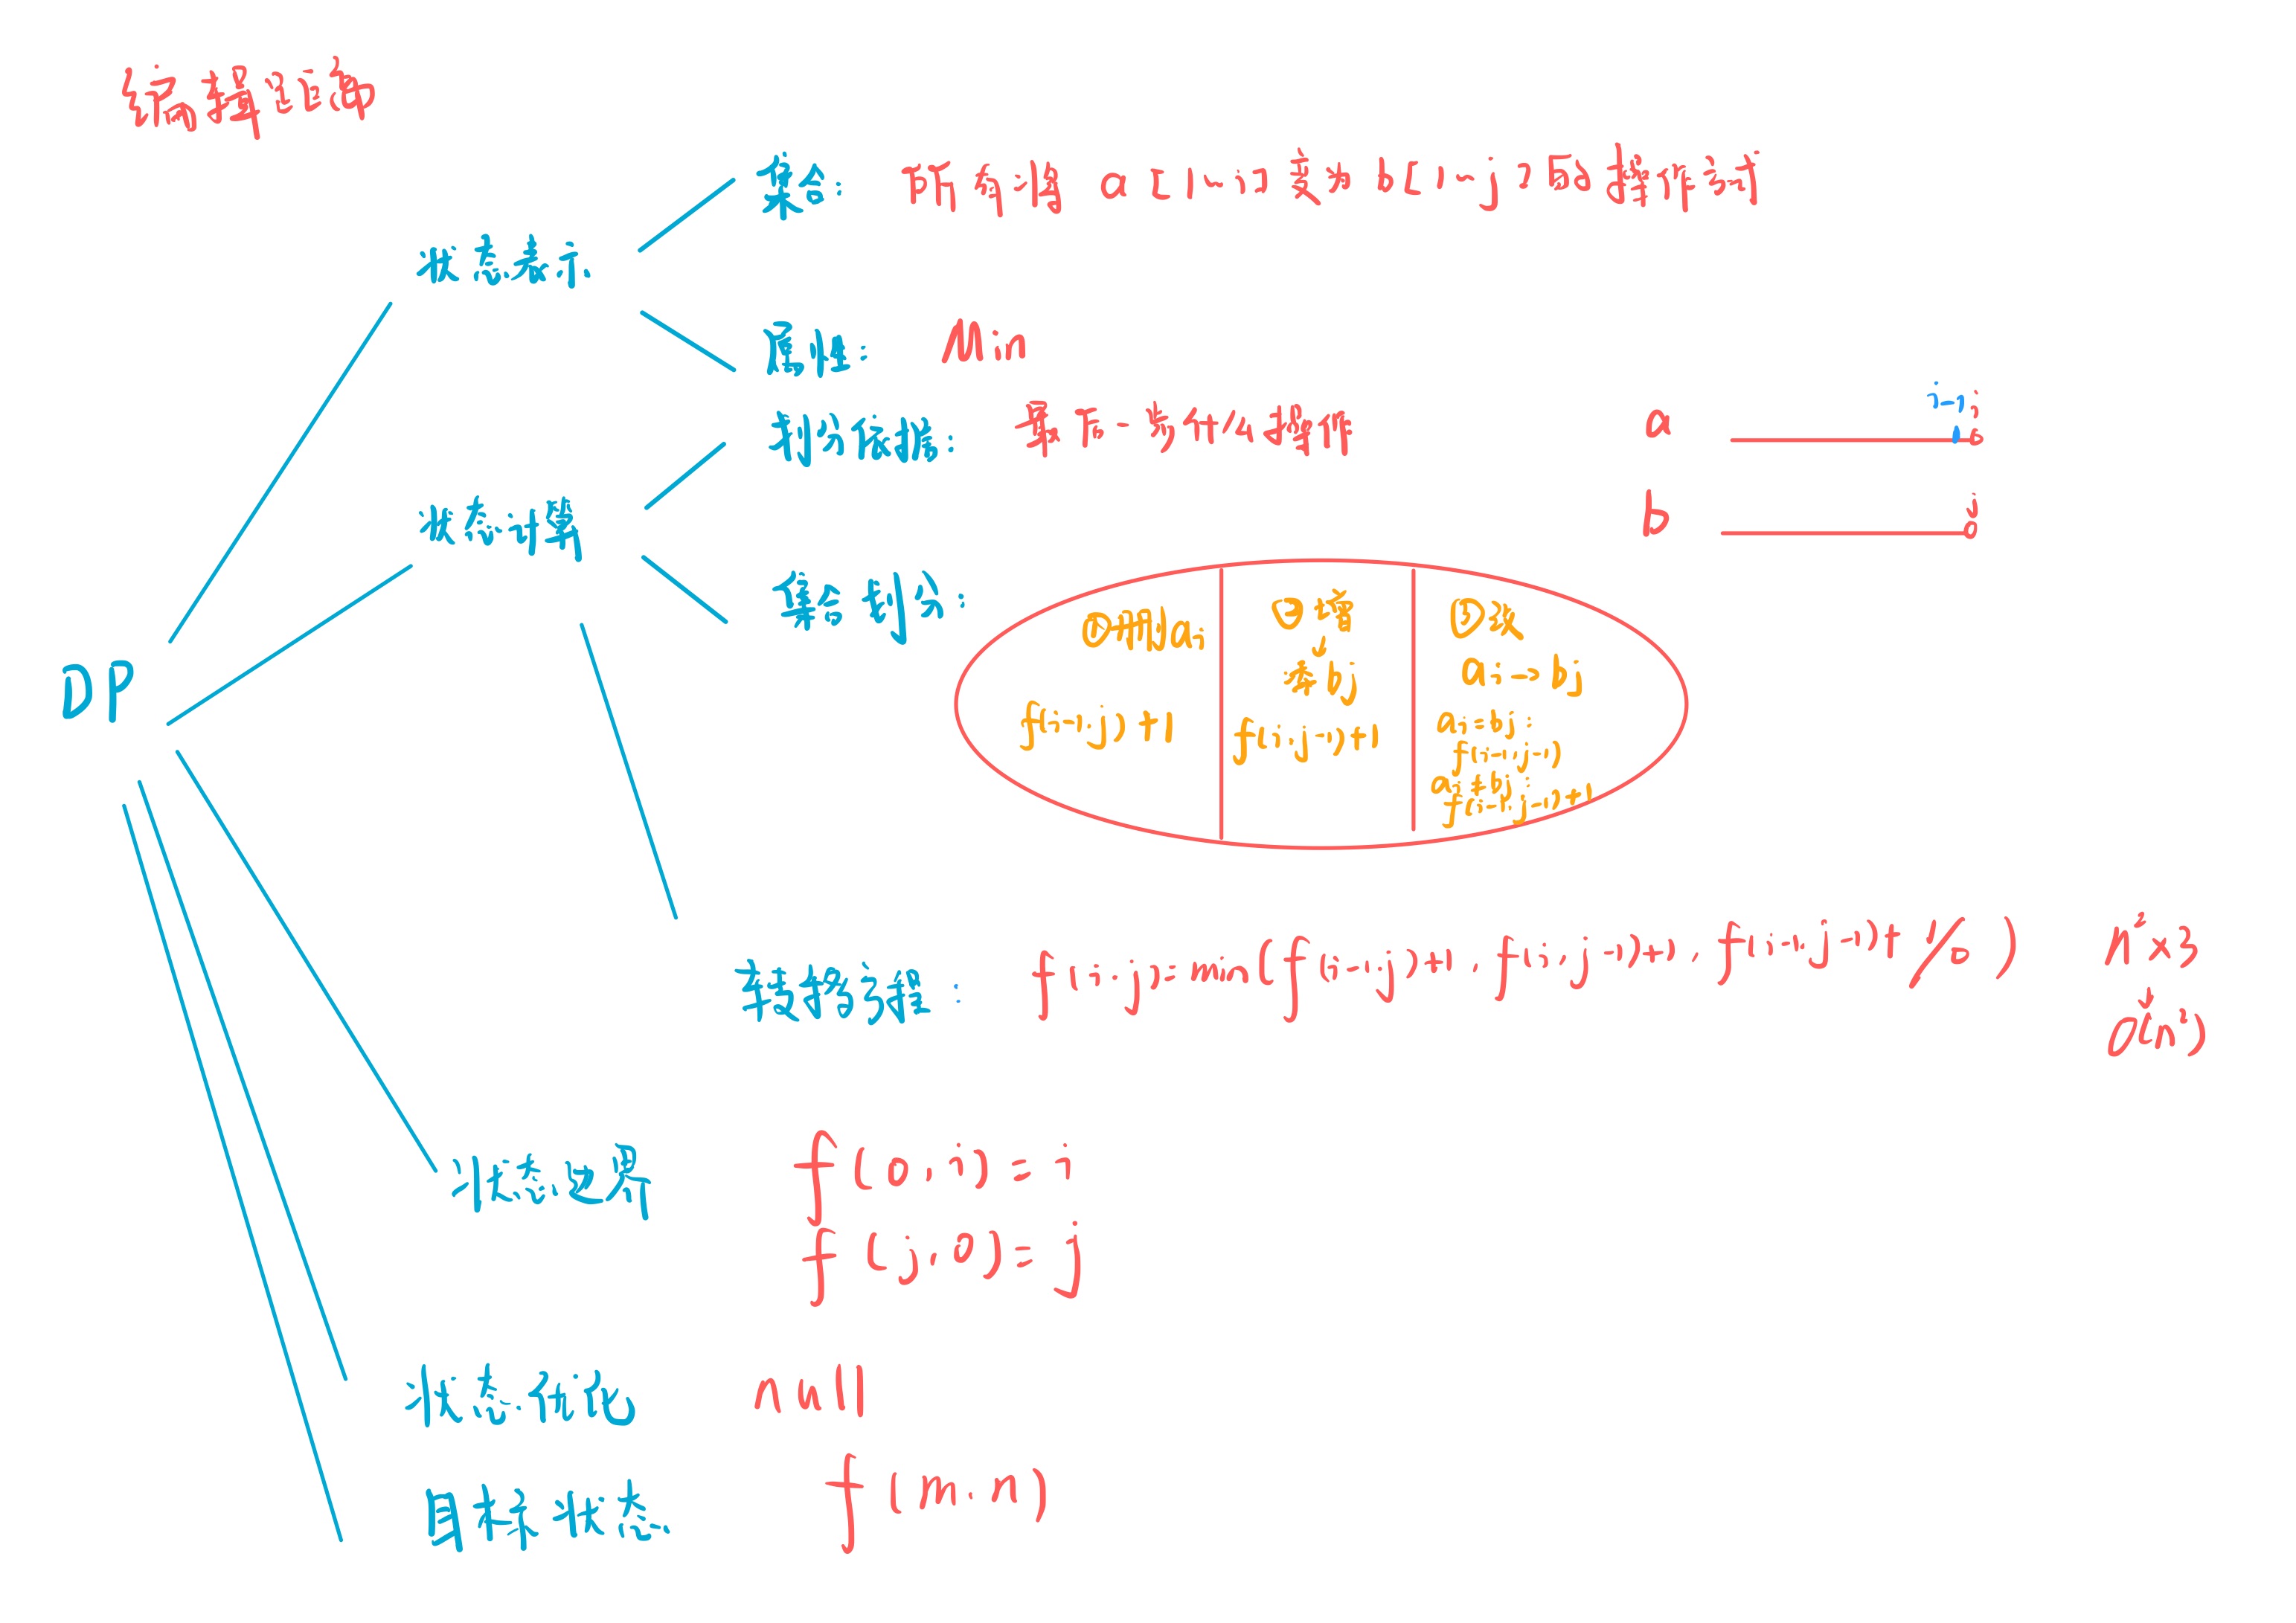 编辑距离
集合: 所有将 a[1~i]变为b[1~j]的操作方式
状态表示
属性: Min
划分依据: 最后一步什么操作
a i-1 i
状态计算
b j
集合划分:
①删 ai
f(i-1,j)+1
②增
↓
添 bj
f(i,j-1)+1
③改
ai→bj
ai=bj:
f(i-1,j-1)
ai≠bj:
f(i-1,j-1)+1
DP
转移方程: f(i,j)=min(f(i-1,j)+1,f(i,j-1)+1,f(i-1,j-1)+1/0) n²×3
↓
O(n²)
状态边界 f(0,i)=i
f(j,0)=j
状态优化 null
目标状态 f(m,n)